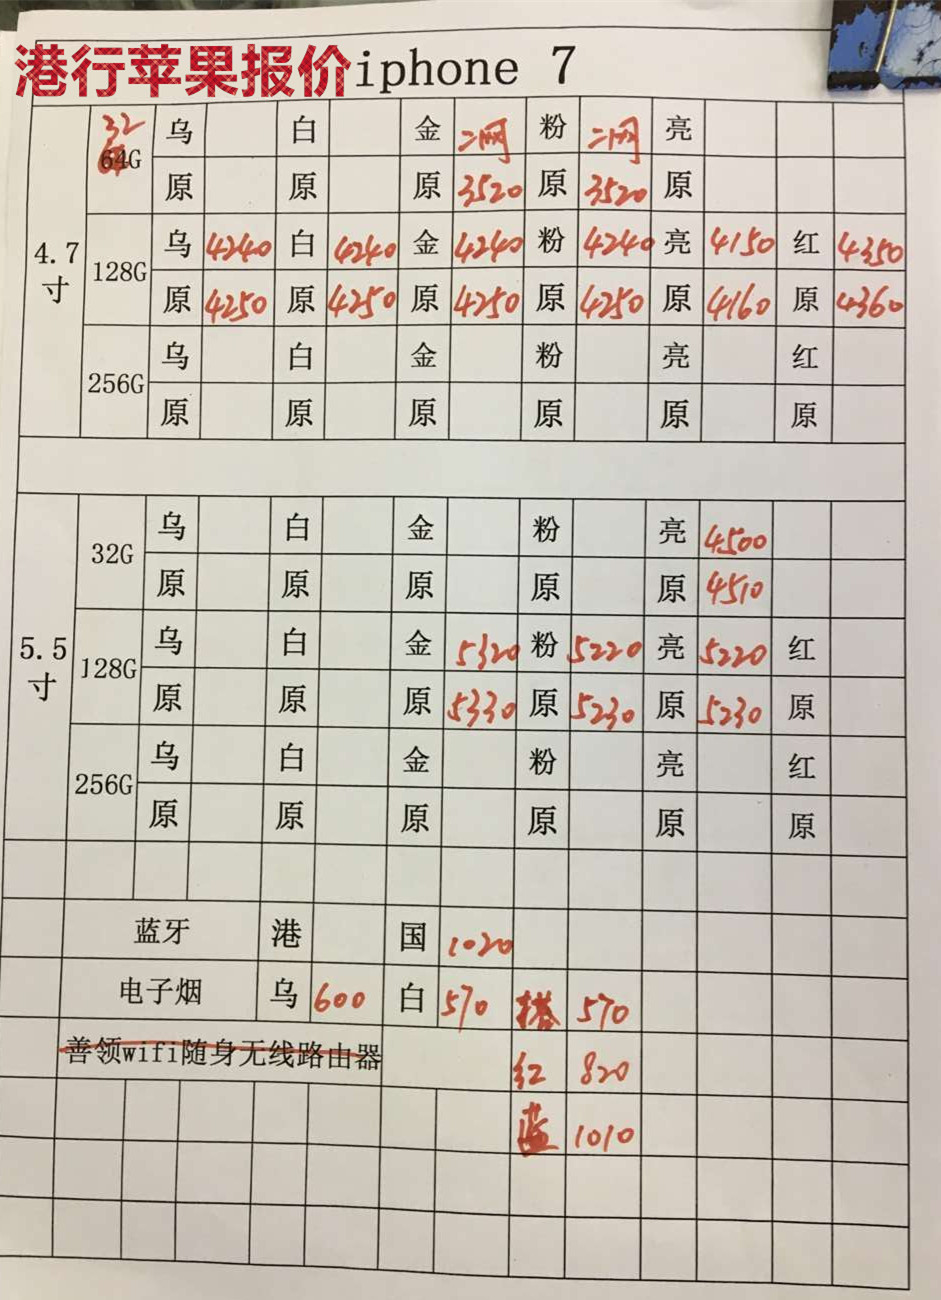 港行苹果报价iphone 7
32
64G 乌 白 金 二网 粉 二网 亮
原 原 原 3520 原 3520 原
4.7寸 128G 乌 4240 白 4240 金 4240 粉 4240 亮 4150 红 4350
原 4250 原 4250 原 4250 原 4250 原 4160 原 4360
256G 乌 白 金 粉 亮 红
原 原 原 原 原 原
32G 乌 白 金 粉 亮 4500
原 原 原 原 原 4510
5.5寸 128G 乌 白 金 5320 粉 5220 亮 5220 红
原 原 原 5330 原 5230 原 5230 原
256G 乌 白 金 粉 亮 红
原 原 原 原 原 原
蓝牙 港 国 1020
电子烟 乌 600 白 570 570
善领wifi随身无线路由器
红 820
蓝 1010